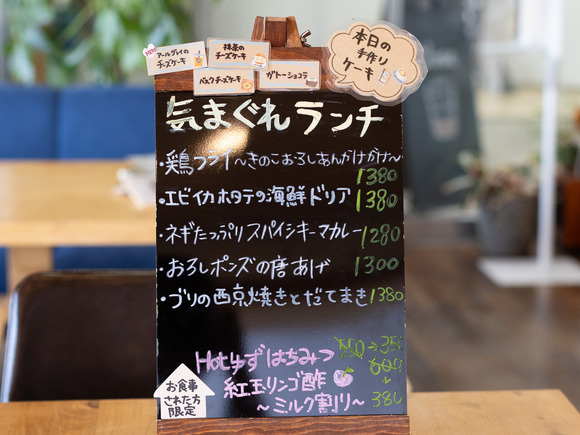 NEW
アールグレイの
チーズケーキ
抹茶の
チーズケーキ
バスクチーズケーキ
ガトーショコラ
本日の
手作り
ケーキ!
気まぐれランチ
・鶏つくね〜きのこおろしあんかけがけ〜
1380
・エビイカホタテの海鮮ドリア 1380
・ネギたっぷりスパイシーキーマカレー 1280
・おろしポンズの唐あげ 1300
・ブリの西京焼きとだてまき 1380
Hotゆずはちみつ 550→350
紅玉リンゴ酢 600
〜ミルク割り〜 380
お食事
された方
限定